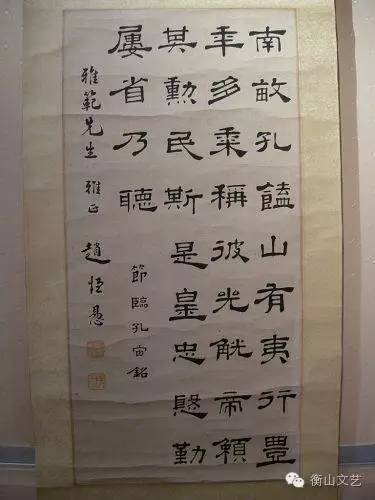 南畝孔饁山有夷行豊
年多黍稱彼兕觥帝賴
其勳民斯是皇忠慇勤
屢省乃聽
節臨孔宙銘
雅範先生 雅正 趙恆惖
衡山文艺